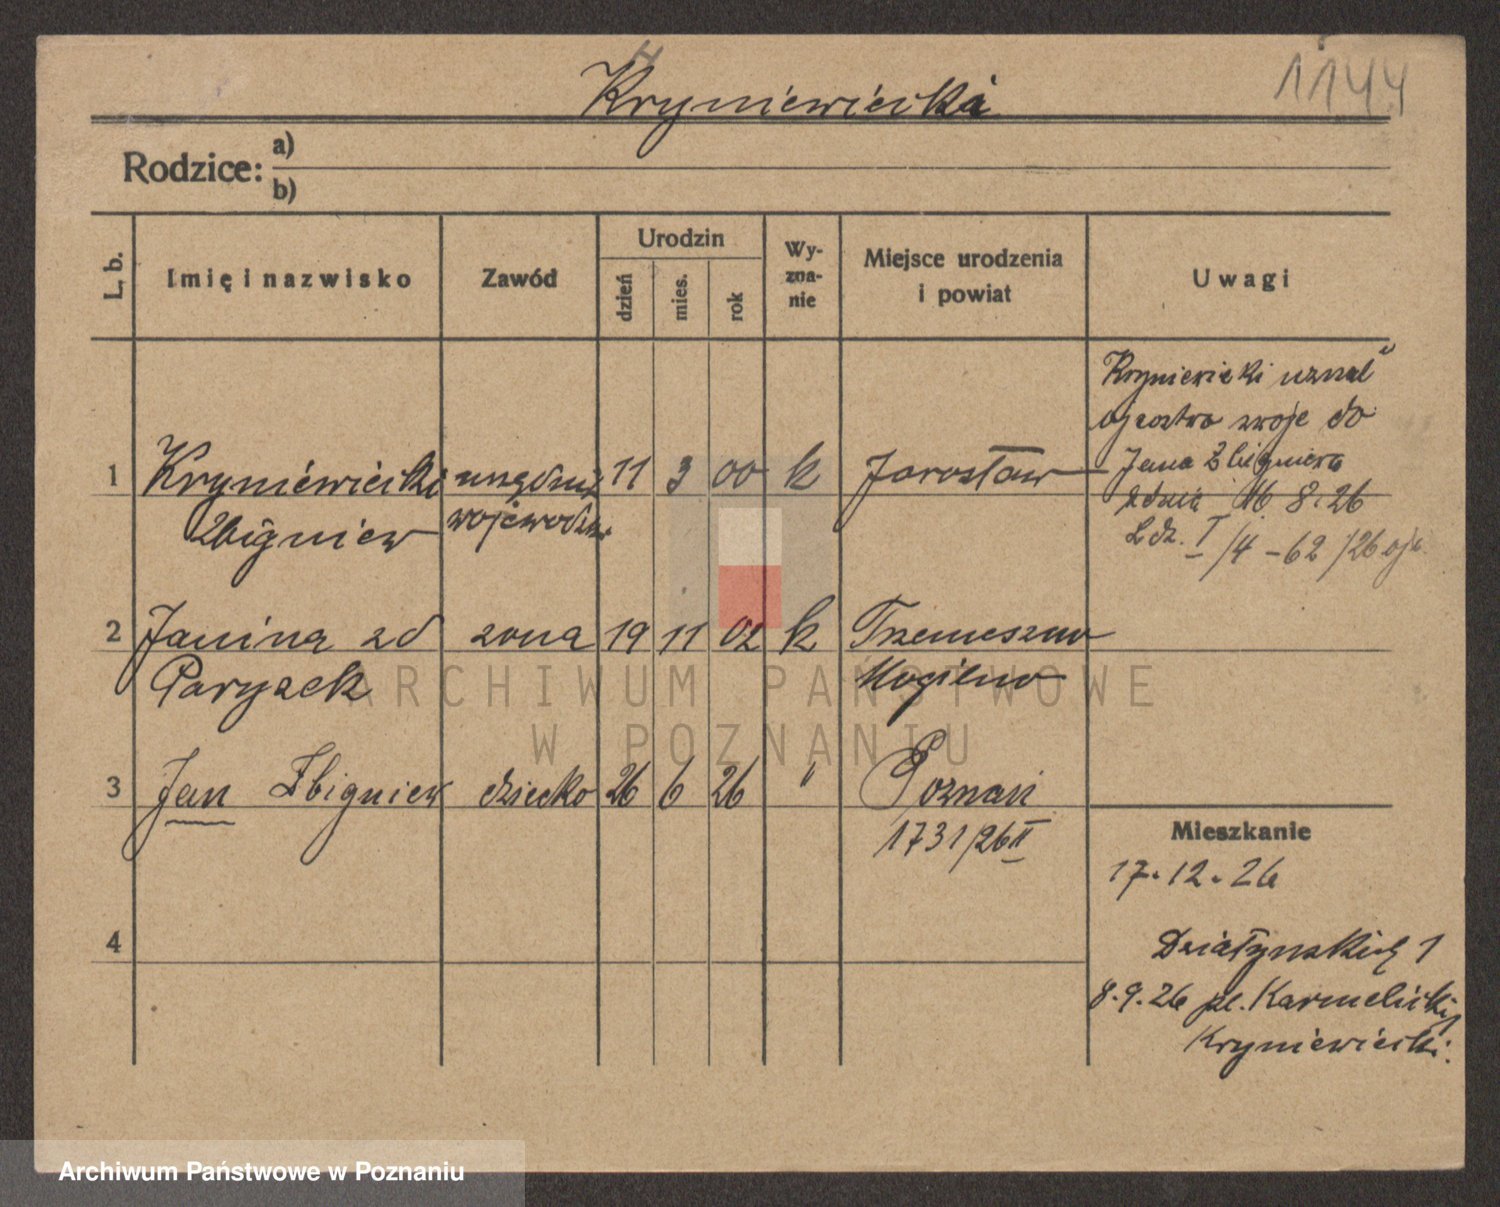 Kryniewiecki
1144
Rodzice:
a)
b)
L. b.
Imię i nazwisko
Zawód
Urodzin
dzień
mies.
rok
Wy-
zna-
nie
Miejsce urodzenia
i powiat
Uwagi
1 Kryniewiecki 11 3 00 k Jarosław
Zbigniew
Kryniewiecki uznał
ojcostwo swoje do
Jana Zbigniewa
16 8.26
L dz. I/4 - 62/26
2 Janina zd żona 19 11 02 k Trzemeszno
Paryzek Mogilno
3 Jan Zbigniew dziecko 26 6 26 " Poznań
1731/26 II
4
Mieszkanie
17.12.26
Działyńskich 1
8.9.26 pl. Karmelicki 1
Kryniewiecki.
ARCHIWUM PAŃSTWOWE
W POZNANIU
Archiwum Państwowe w Poznaniu